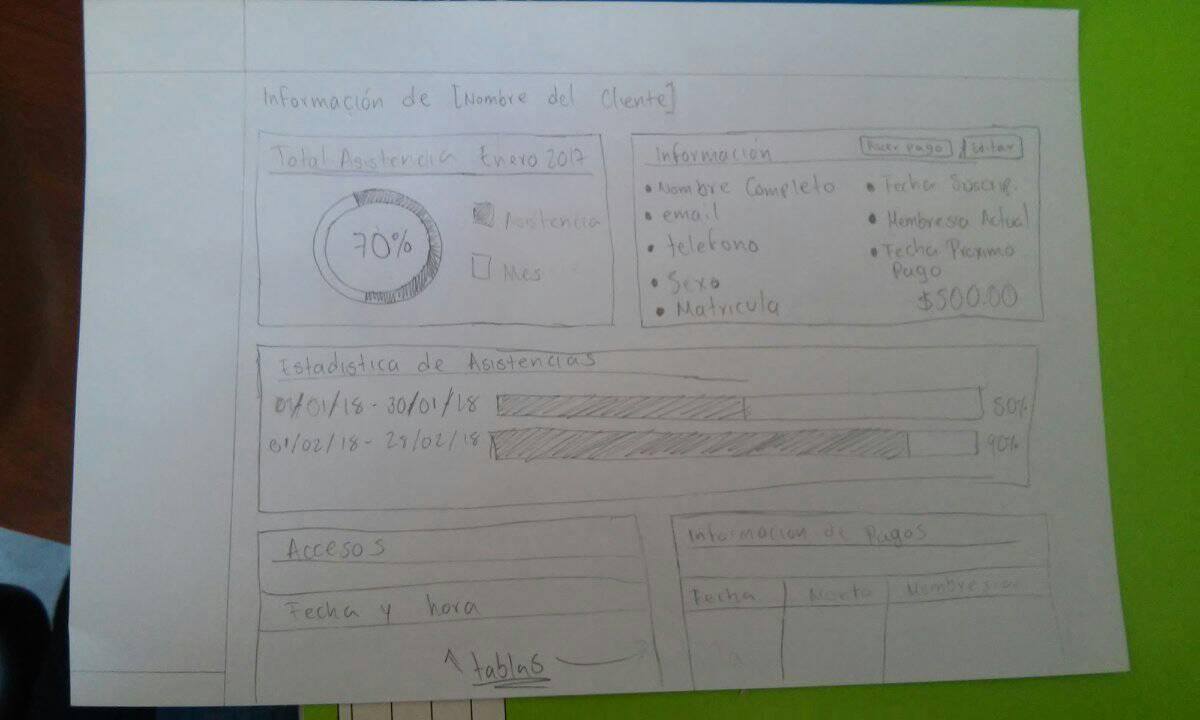 Información de [Nombre del Cliente]
Total Asistencia Enero 2017
70%
Asistencia
Mes
Información
Hacer pago
Editar
• Nombre Completo
• email
• telefono
• Sexo
• Matricula
• Fecha Suscrip.
• Membresia Actual
• Fecha Proximo
Pago
$500.00
Estadistica de Asistencias
01/01/18 - 30/01/18
50%
01/02/18 - 28/02/18
90%
Accesos
Fecha y hora
tablas
Informacion de Pagos
Fecha
Monto